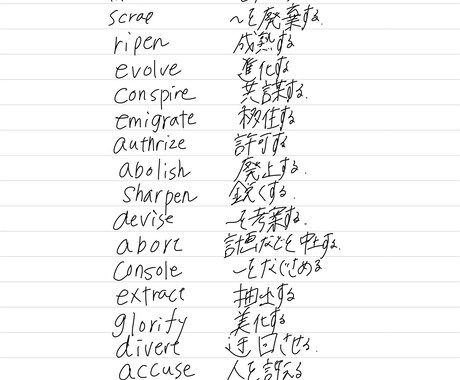 scrae ～を廃棄する.
ripen 成熟する
evolve 進化する
conspire 共謀する.
emigrate 移住する.
authrize 許可する
abolish 廃止する.
sharpen 鋭くする.
devise ～を考案する.
abort 計画などを中止する.
console ～をなぐさめる
extract 抽出する
glorify 美化する
divert 迂回させる.
accuse 人を訴える